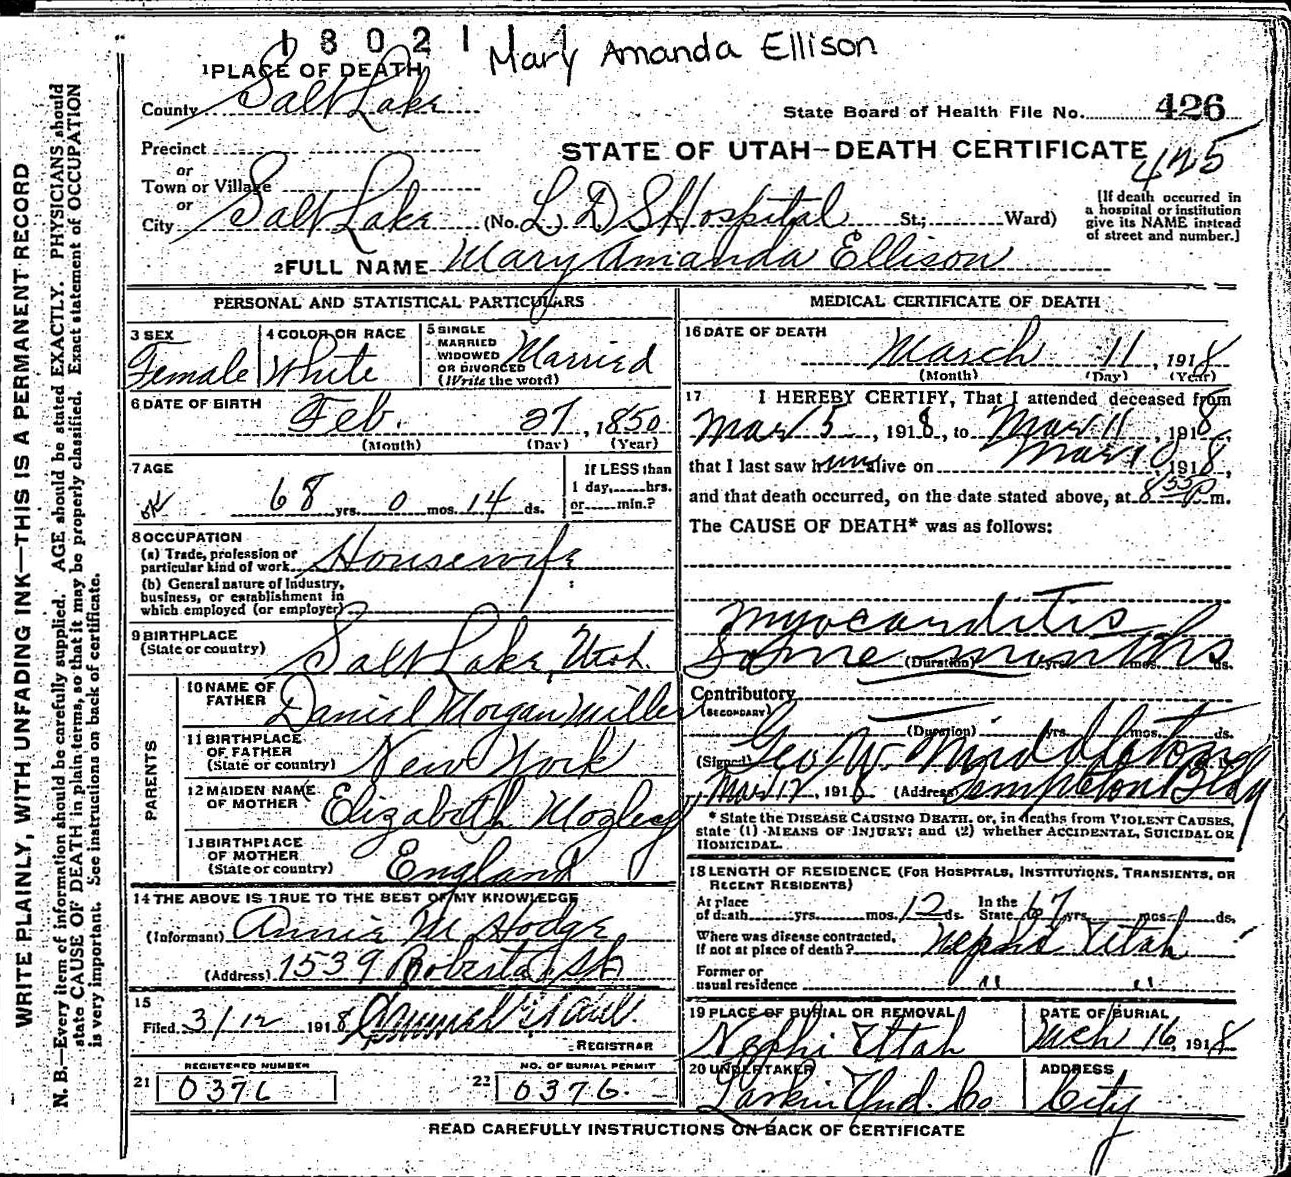 1 8 0 2 1 Mary Amanda Ellison
1 PLACE OF DEATH
County Salt Lake
State Board of Health File No. 426
Precinct
STATE OF UTAH—DEATH CERTIFICATE
425
or
Town or Village
or
City Salt Lake (No. L D S Hospital St.; Ward)
[If death occurred in
a hospital or institution
give its NAME instead
of street and number.]
2 FULL NAME Mary Amanda Ellison
PERSONAL AND STATISTICAL PARTICULARS
3 SEX
Female
4 COLOR OR RACE
White
5 SINGLE
MARRIED
WIDOWED
OR DIVORCED
(Write the word)
Married
6 DATE OF BIRTH
Feb. 27, 1850
(Month) (Day) (Year)
7 AGE
68 yrs. 0 mos. 14 ds.
If LESS than
1 day,.....hrs.
or.....min.?
ok
8 OCCUPATION
(a) Trade, profession or
particular kind of work Housewife
(b) General nature of Industry,
business, or establishment in
which employed (or employer)
9 BIRTHPLACE
(State or country)
Salt Lake, Utah.
PARENTS
10 NAME OF
FATHER
Daniel Morgan Miller
11 BIRTHPLACE
OF FATHER
(State or country)
New York
12 MAIDEN NAME
OF MOTHER
Elizabeth Mogley
13 BIRTHPLACE
OF MOTHER
(State or country)
England
14 THE ABOVE IS TRUE TO THE BEST OF MY KNOWLEDGE
(Informant) Annie M Hodge
(Address) 1539 Roberta St
15
Filed 3/12 1918
REGISTRAR
REGISTERED NUMBER
21 0376
NO. OF BURIAL PERMIT
22 0376.
MEDICAL CERTIFICATE OF DEATH
16 DATE OF DEATH
March 11, 1918
(Month) (Day) (Year)
17 I HEREBY CERTIFY, That I attended deceased from
Mar 5, 1918, to Mar 11, 1918,
that I last saw alive on Mar 10, 1918,
and that death occurred, on the date stated above, at 8 55 P m.
The CAUSE OF DEATH* was as follows:
Myocarditis
Some months
(Duration) yrs. mos. ds.
Contributory
(SECONDARY)
(Duration) yrs. mos. ds.
(Signed) Geo W. Middleton
Mar 12, 1918 (Address) Templeton Bldg
* State the DISEASE CAUSING DEATH, or, in deaths from VIOLENT CAUSES,
state (1) MEANS OF INJURY; and (2) whether ACCIDENTAL, SUICIDAL OR
HOMICIDAL.
18 LENGTH OF RESIDENCE (FOR HOSPITALS, INSTITUTIONS, TRANSIENTS, OR
RECENT RESIDENTS)
At place
of death yrs. mos. 12 ds.
In the
State 67 yrs. mos. ds.
Where was disease contracted,
if not at place of death? Nephi Utah
Former or
usual residence " "
19 PLACE OF BURIAL OR REMOVAL
Nephi Utah
DATE OF BURIAL
Mch 16, 1918
20 UNDERTAKER
Larkin Und. Co
ADDRESS
City
READ CAREFULLY INSTRUCTIONS ON BACK OF CERTIFICATE
WRITE PLAINLY, WITH UNFADING INK—THIS IS A PERMANENT RECORD
N. B.—Every item of information should be carefully supplied. AGE should be stated EXACTLY. PHYSICIANS should
state CAUSE OF DEATH in plain terms, so that it may be properly classified. Exact statement of OCCUPATION
is very important. See instructions on back of certificate.